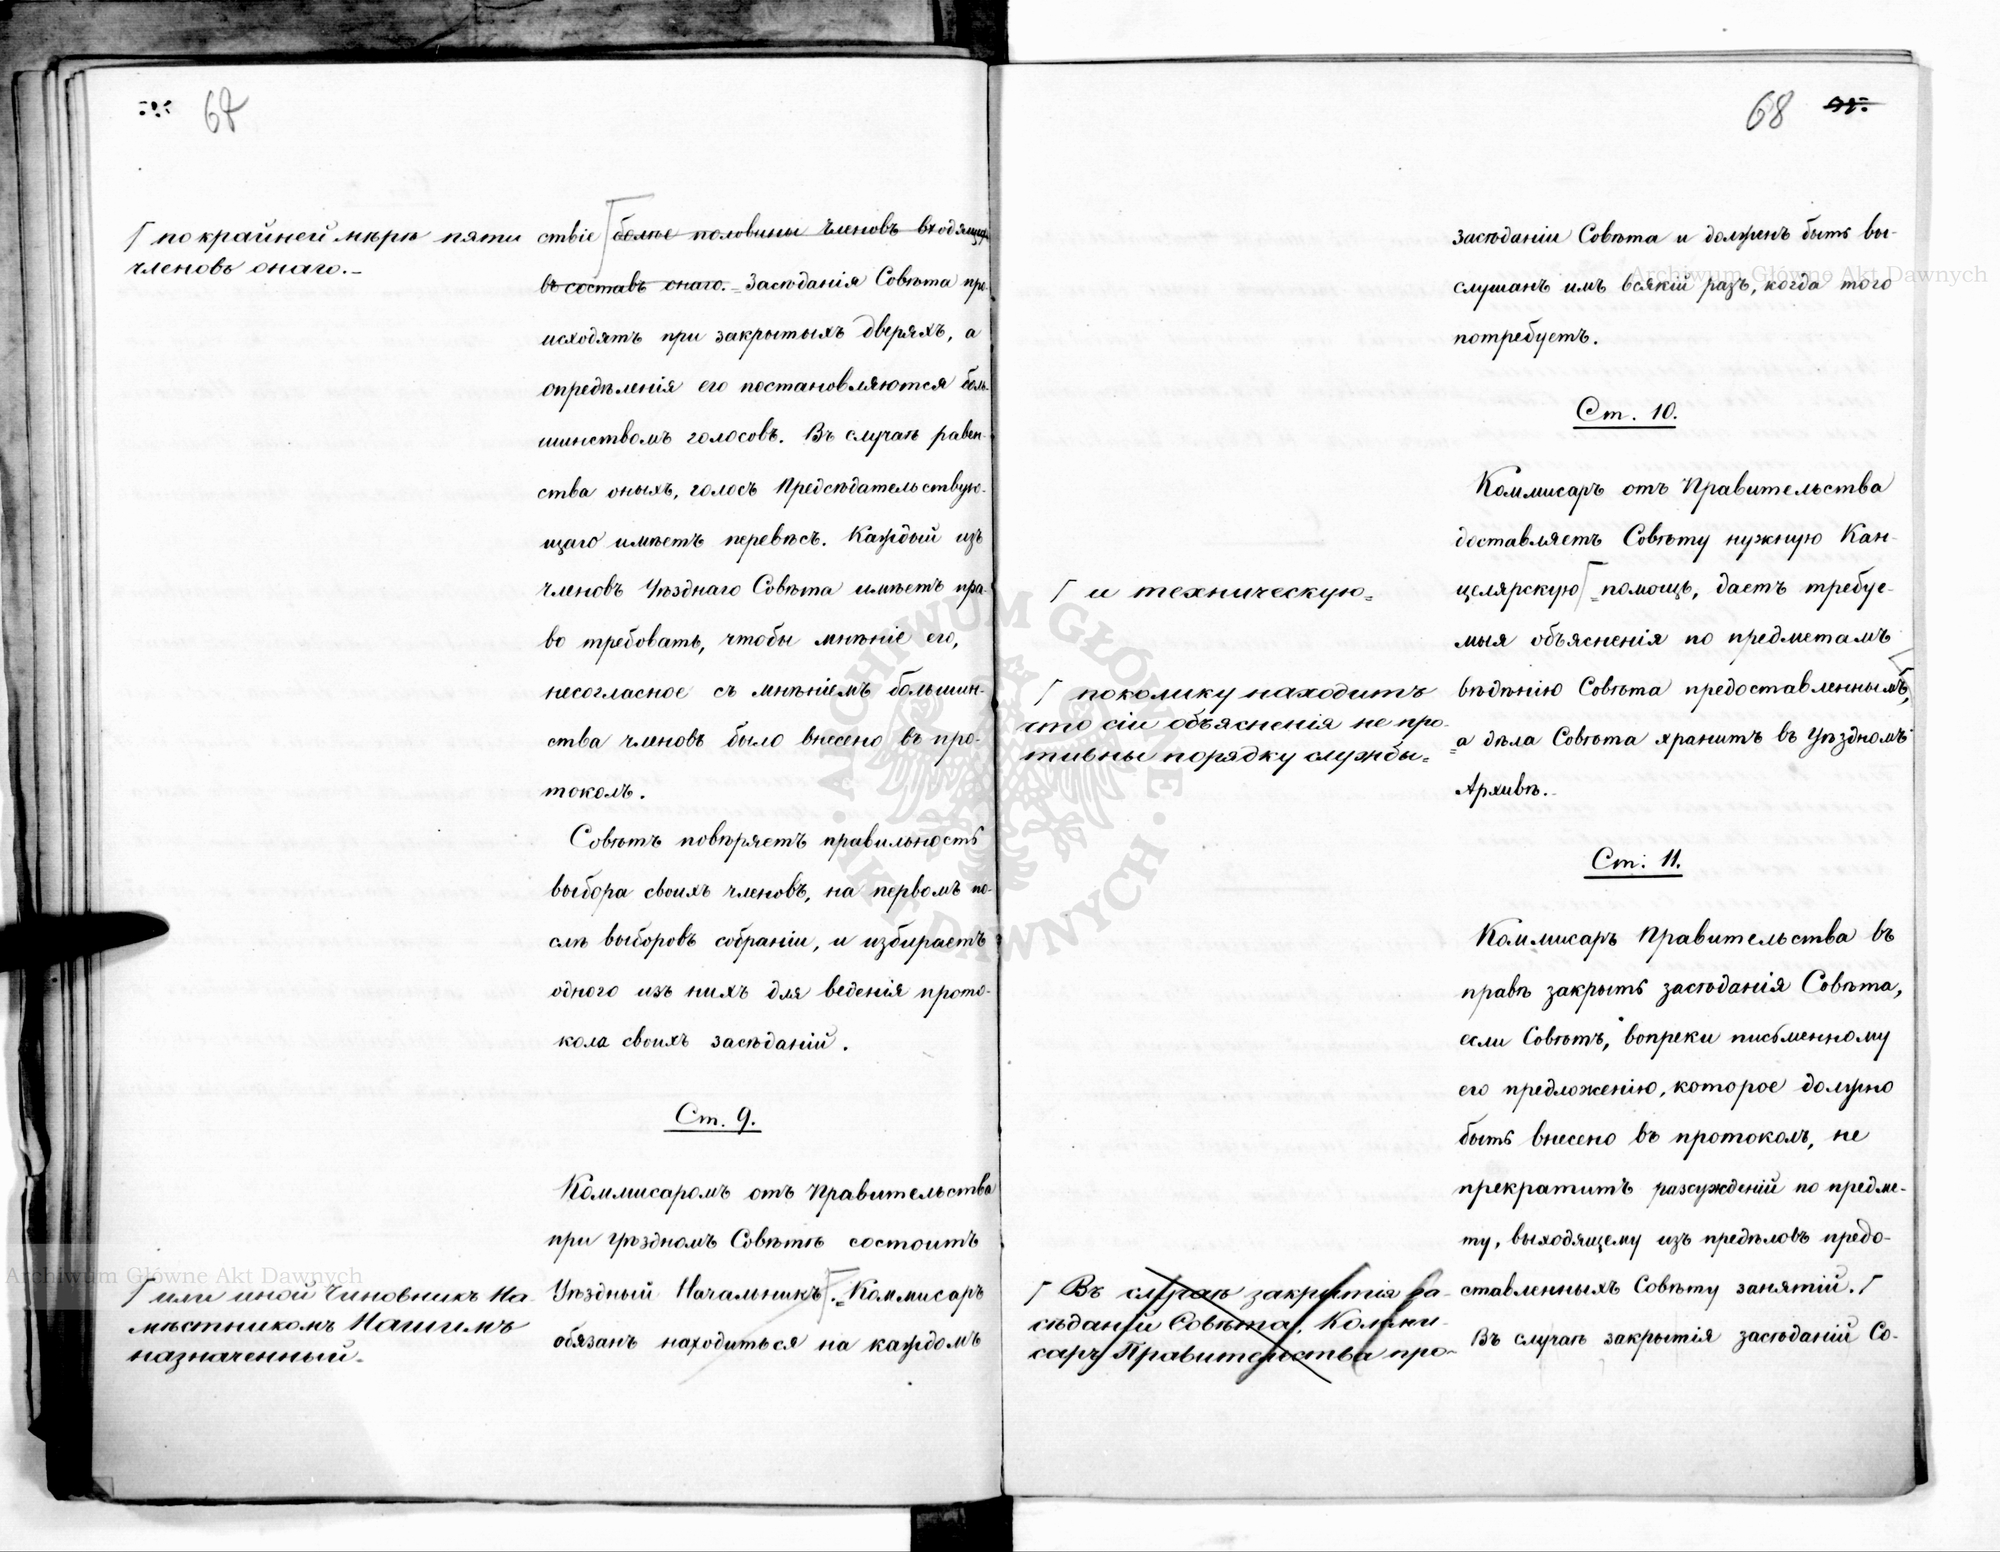 67
⌈ по крайней мѣрѣ пяти
членовъ онаго.–
ствіе ⌈ более половины членовъ входящихъ
въ составъ онаго. = Засѣданія Совѣта про-
исходятъ при закрытыхъ дверяхъ, а
опредѣленія его постановляются боль-
шинствомъ голосовъ. Въ случаѣ равен-
ства оныхъ, голосъ Предсѣдательствую-
щаго имѣетъ перевѣсъ. Каждый изъ
членовъ Уѣзднаго Совѣта имѣетъ пра-
во требовать, чтобы мнѣніе его,
несогласное съ мнѣніемъ большин-
ства членовъ было внесено въ про-
токолъ.
Совѣтъ повѣряетъ правильность
выбора своихъ членовъ, на первомъ по-
слѣ выборовъ собраніи, и избираетъ
одного изъ нихъ для веденія прото-
кола своихъ засѣданій.
Ст. 9.
Коммисаромъ отъ Правительства
при Уѣздномъ Совѣтѣ состоитъ
Уѣздный Начальникъ ⌈. = Коммисаръ
обязанъ находиться на каждомъ
⌈ или иной Чиновникъ На-
мѣстникомъ Нашимъ
назначенный.–
68
засѣданіи Совѣта и долженъ быть вы-
слушанъ имъ всякій разъ, когда того
потребуетъ.
Ст. 10.
Коммисаръ отъ Правительства
доставляетъ Совѣту нужную Кан-
целярскую ⌈ = помощь, даетъ требуе-
мыя объясненія по предметамъ
вѣдѣнію Совѣта предоставленнымъ, ⌈
= а дѣла Совѣта хранитъ въ Уѣздномъ
Архивѣ.–
⌈ и техническую =
⌈ поколику находитъ
что сіи объясненія не про-
тивны порядку службы. =
Ст. 11.
Коммисаръ Правительства въ
правѣ закрыть засѣданія Совѣта,
если Совѣтъ, вопреки письменному
его предложенію, которое должно
быть внесено въ протоколъ, не
прекратитъ разсужденій по предме-
ту, выходящему изъ предѣловъ предо-
ставленныхъ Совѣту занятій. ⌈
Въ случаѣ закрытія засѣданій Со-
⌈ Въ случаѣ закрытія за-
сѣданій Совѣта, Комми-
саръ Правительства про-
Archiwum Główne Akt Dawnych
Archiwum Główne Akt Dawnych
ARCHIWUM GŁÓWNE · AKT DAWNYCH ·